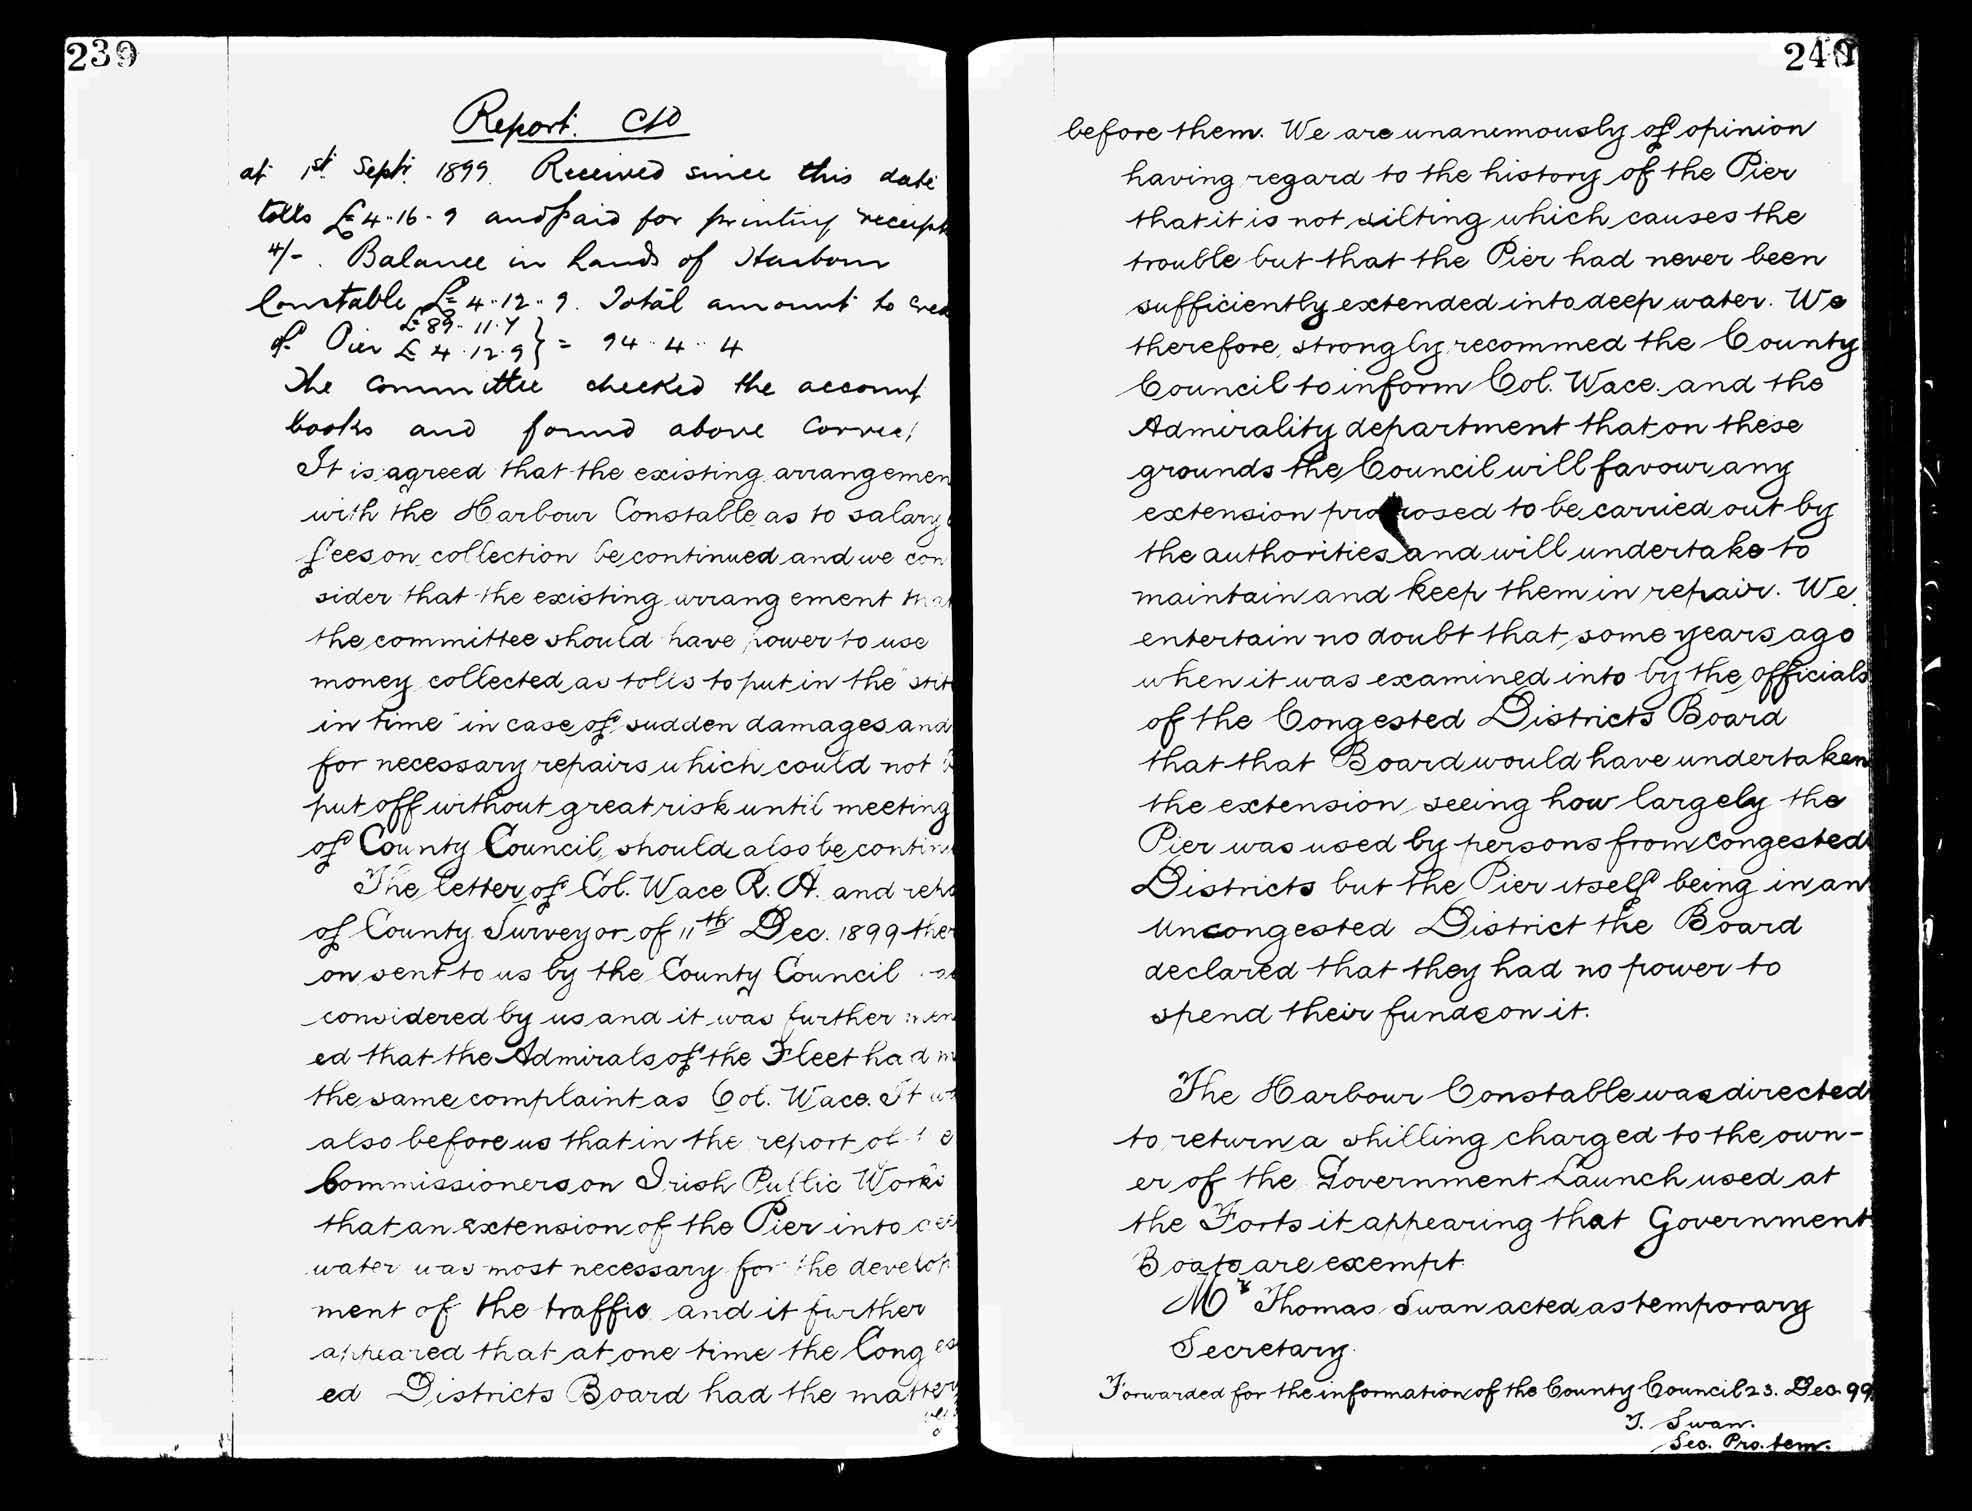 239
Report. Ctd
at 1st Septr. 1899. Received since this date
tolls £4-16-9 and paid for printing receipt
4/-. Balance in hands of Harbour
Constable £4-12-9. Total amount to
of Pier £89-11-7
£4-12-9 } = 94-4-4
The Committee checked the account
books and found above correct
It is agreed that the existing arrangemen
with the Harbour Constable as to salary
fees on collection be continued and we con
sider that the existing arrangement that
the committee should have power to use
money collected as tolls to put in the "stit
in time" in case of sudden damages and
for necessary repairs which could not
put off without great risk until meeting
of County Council, should also be contin
The letter of Col. Wace R.A. and
of County Surveyor of 11th Dec. 1899 ther
on sent to us by the County Council
considered by us and it was further
ed that the Admirals of the Fleet had
the same complaint as Col. Wace. It
also before us that in the report of
Commissioners on Irish Public Works
that an extension of the Pier into
water was most necessary for the develop
ment of the traffic and it further
appeared that at one time the Cong
ed Districts Board had the matter
240
before them. We are unanimously of opinion
having regard to the history of the Pier
that it is not silting which causes the
trouble but that the Pier had never been
sufficiently extended into deep water. We
therefore strongly recommed the County
Council to inform Col. Wace. and the
Admirality department that on these
grounds the Council will favour any
extension proposed to be carried out by
the authorities and will undertake to
maintain and keep them in repair. We
entertain no doubt that some years ago
when it was examined into by the officials
of the Congested Districts Board
that that Board would have undertaken
the extension seeing how largely the
Pier was used by persons from congested
Districts but the Pier itself being in an
uncongested District the Board
declared that they had no power to
spend their funds on it.
The Harbour Constable was directed
to return a shilling charged to the own-
er of the Government Launch used at
the Forts it appearing that Government
Boats are exempt.
Mr Thomas Swan acted as temporary
Secretary.
Forwarded for the information of the County Council 23. Dec. 99
T. Swan.
Sec. Pro. tem.